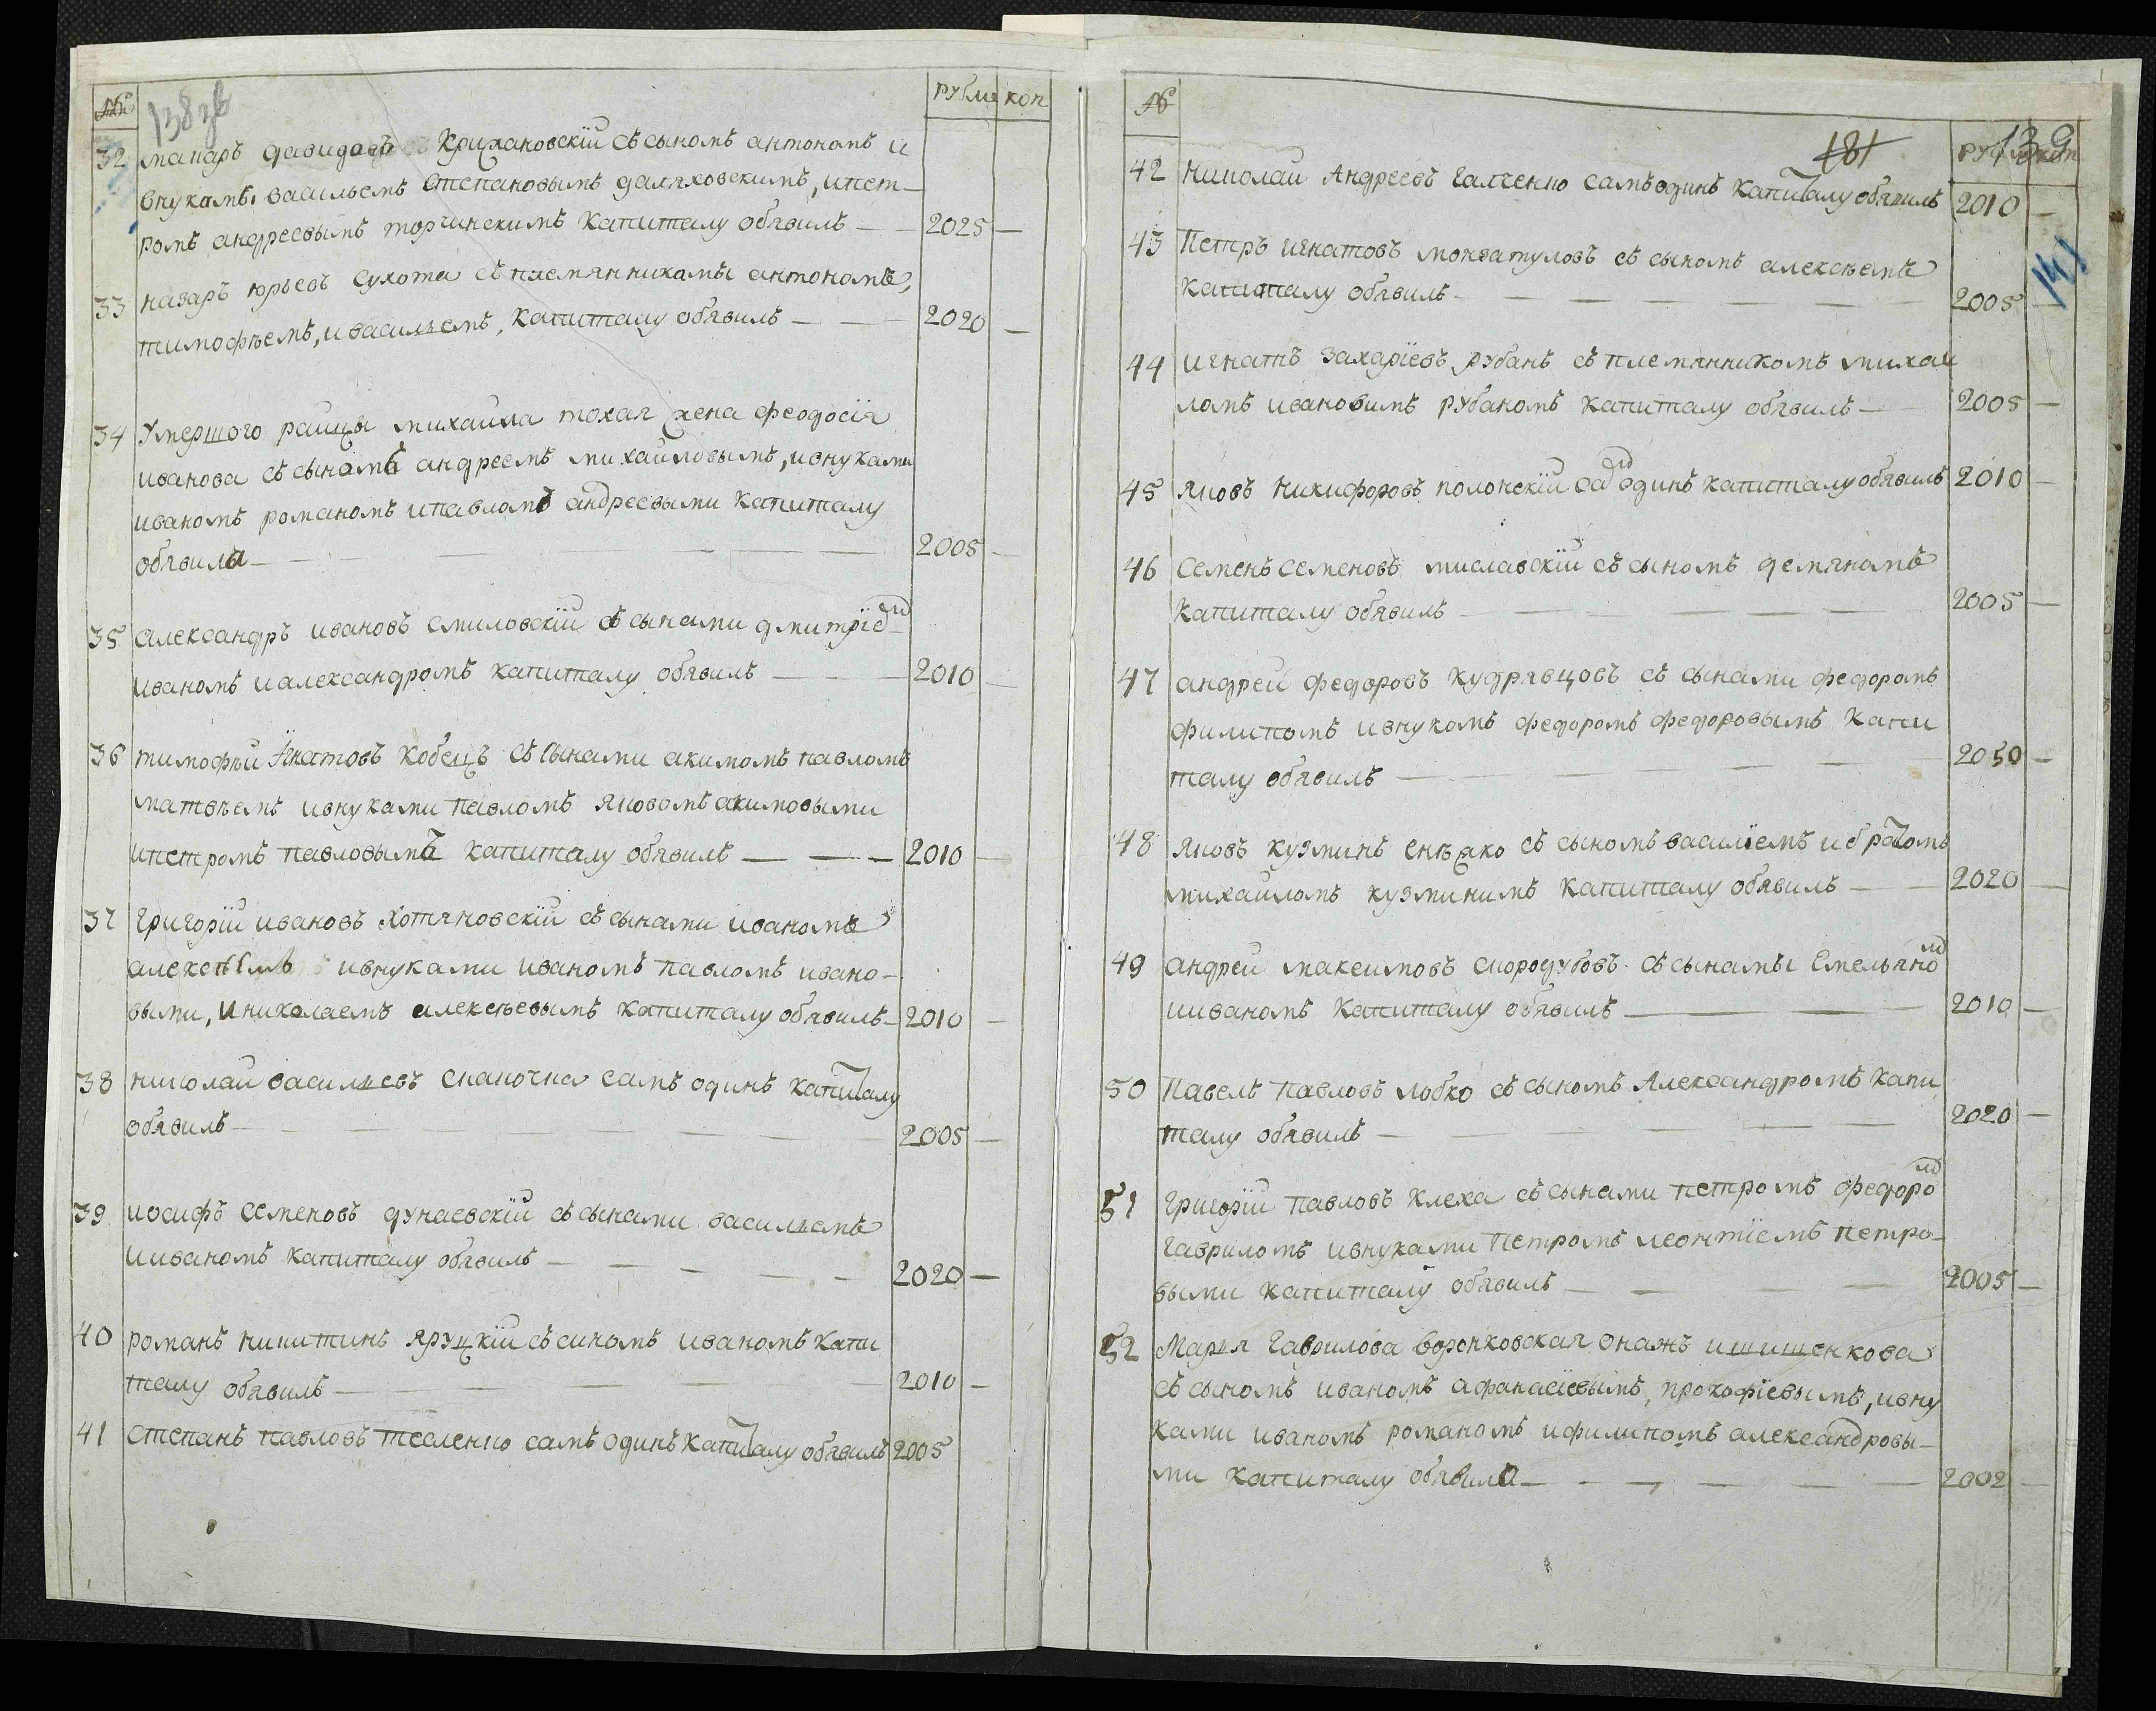 № рубли коп
138 зв
32 макаръ давидовъ Крижановскїй съ сыномъ антономъ и
внукамы васильемъ степановымъ даляховскимъ, ипет-
ромъ андреевымъ торчинскимъ капиталу обявилъ — — 2025 —
33 назаръ юрьевъ сухота съ племянникамы антономъ,
тимофѣемъ, ивасильемъ, капиталу обявилъ — — 2020 —
34 Умершого райцы михайла тохая жена феодосїя
иванова съ сыномъ андреемъ михайловымъ, ивнуками
иваномъ романомъ ипавломъ андреевыми капиталу
обявила — — — — 2005 —
35 александръ ивановъ смиловскїй съ сынами дмитрїем
иваномъ иалександромъ капиталу обявилъ — — — 2010 —
36 тимофѣй Игнатовъ кобецъ съ сынами акимомъ павломъ
матвѣемъ ивнуками павломъ яковомъ акимовыми
ипетромъ павловымъ капиталу обявилъ — — — 2010 —
37 григорїй ивановъ Хотяновскїй съ сынами иваномъ
алексѣемъ ивнуками иваномъ павломъ ивано-
выми, и николаемъ алексѣевымъ капиталу обявилъ — 2010 —
38 николай васильевъ скапочка самъ одинъ капиталу
обявилъ — — — — — 2005 —
39 иосифъ семеновъ дунаевскїй съ сынами васильемъ
ииваномъ капиталу обявилъ — — — — — 2020 —
40 романъ никитинъ яруцкїй съ синомъ иваномъ капи
талу обявилъ — — — — 2010 —
41 степанъ павловъ тесленко самъ одинъ капиталу обявилъ 2005
№ рубли коп
181
139
141
42 николай Андреевъ галченко самъ одинъ капиталу обявилъ 2010 —
43 Петръ игнатовъ мокватуловъ съ сыномъ алексѣемъ
капиталу обявилъ — — — — — — 2005 —
44 игнатъ захарїевъ рубанъ съ племянникомъ михаи
ломъ ивановимъ рубаномъ капиталу обявилъ — 2005 —
45 яковъ никифоровъ полонскїй сам одинъ капиталу обявилъ 2010 —
46 семенъ семеновъ миславскїй съ сыномъ демяномъ
капиталу обявилъ — — — — — 2005 —
47 андрей федоровъ кудрявцовъ съ сынами федоромъ
филипомъ ивнукомъ федоромъ федоровымъ капи
талу обявилъ — — — — 2050 —
48 яковъ кузминъ снѣжко съ сыномъ василїемъ ибратомъ
михайломъ кузминимъ капиталу обявилъ — — 2020 —
49 андрей максимовъ скородубовъ съ сынамы Емельяном
ииваномъ капиталу обявилъ — — — 2010 —
50 Павелъ павловъ лобко съ сыномъ Александромъ капи
талу обявилъ — — — — — 2020 —
51 григорїй павловъ клеха съ сынами петромъ федором
гавриломъ ивнуками петромъ леонтїемъ петро-
выми капиталу обявилъ — — — 2005 —
52 Марья гаврилова воронковская онажъ ишишенкова
съ сыномъ иваномъ афанасїевымъ, прокофїевымъ, ивну
ками иваномъ романомъ ифилипомъ александровы-
ми капиталу обявила — — — — — 2002 —